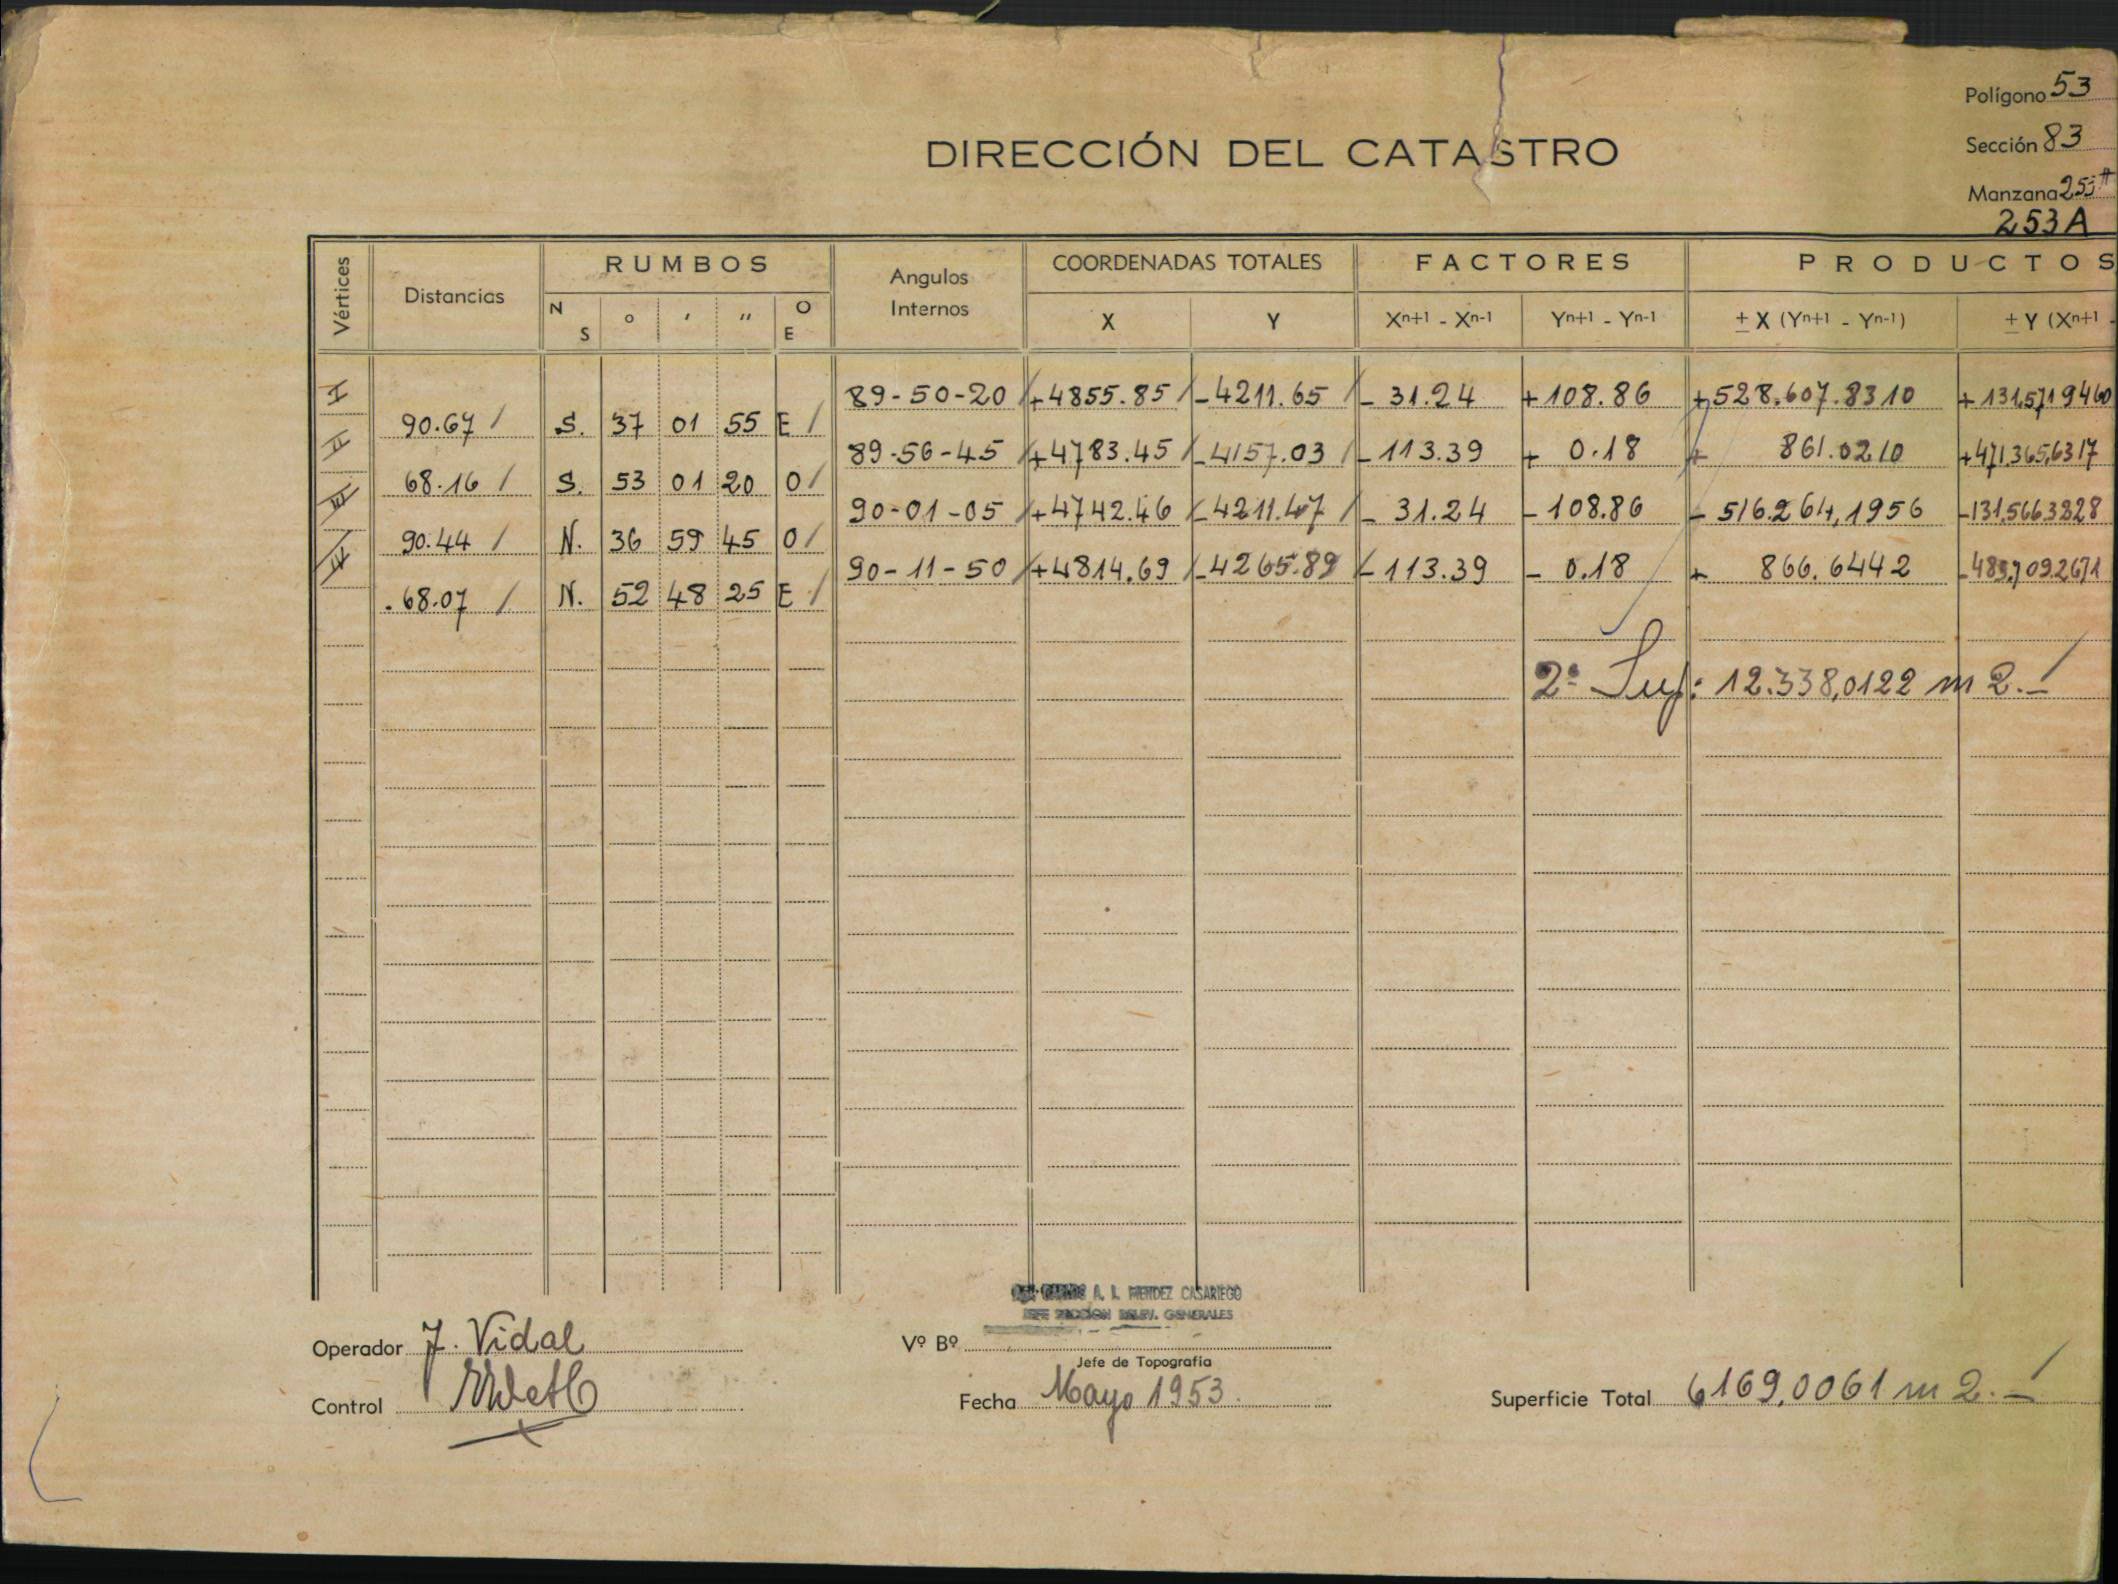 Polígono 53
Sección 83
Manzana 253
253A
DIRECCIÓN DEL CATASTRO
Vértices Distancias RUMBOS Angulos Internos COORDENADAS TOTALES FACTORES PRODUCTOS
N S ° ' " O E X Y Xn+1 - Xn-1 Yn+1 - Yn-1 ± X (Yn+1 - Yn-1) ± Y (Xn+1 -
I 89-50-20 +4855.85 -4211.65 - 31.24 +108.86 +528.607.8310 +131.571 9460
90.67 S. 37 01 55 E
II 89-56-45 +4783.45 -4157.03 -113.39 + 0.18 + 861.0210 +471.365,6317
68.16 S. 53 01 20 O
III 90-01-05 +4742.46 -4211.47 - 31.24 -108.86 - 516.264,1956 -131,566.3228
90.44 N. 36 59 45 O
IV 90-11-50 +4814.69 -4265.89 -113.39 - 0.18 - 866.6442 -483,709.2671
68.07 N. 52 48 25 E
2ª Sup: 12.338,0122 m 2.-
A. L. MENDEZ CASARIEGO
JEFE SECCION RELEV. GENERALES
Operador J. Vidal
Vº Bº
Jefe de Topografía
Control
Fecha Mayo 1953.
Superficie Total 6169,0061 m 2.-